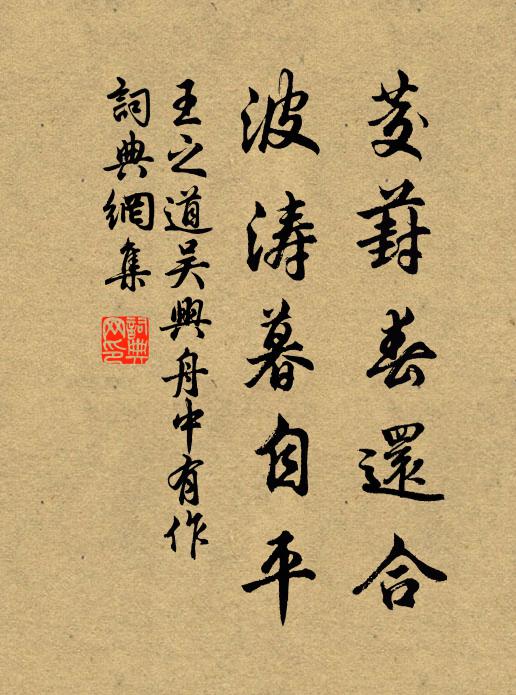 茭葑春還合
波濤暮自平
王之道吴興舟中有作
詞典網集
詞典網印